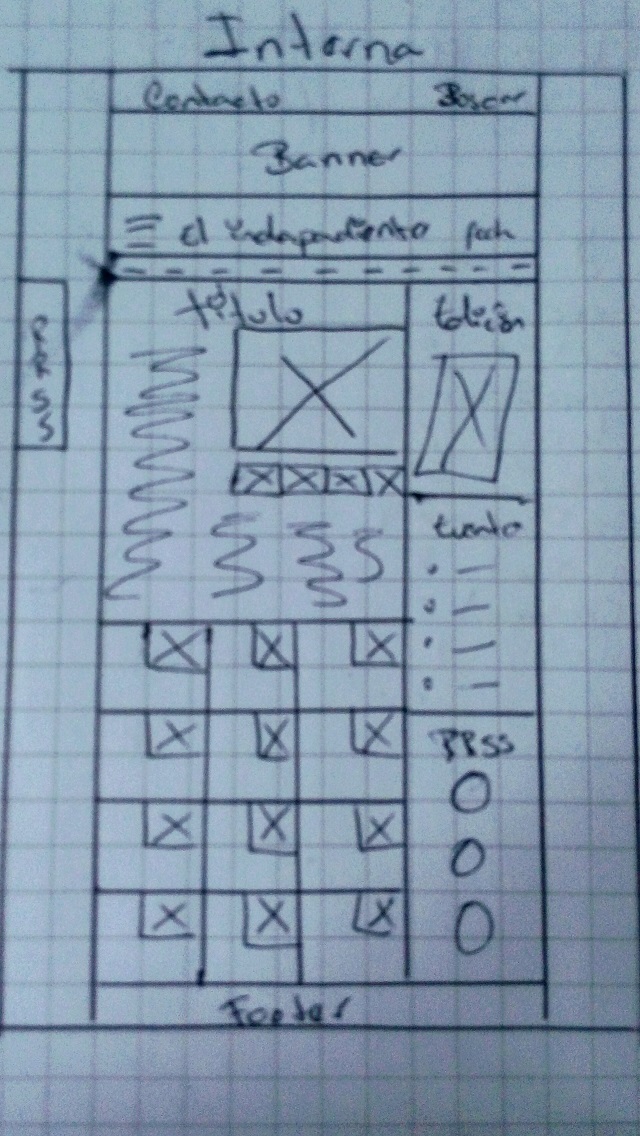 Interna
Contacto Buscar
Banner
El independiente fech
Título
Edición
RRSS
RRSS
Footer